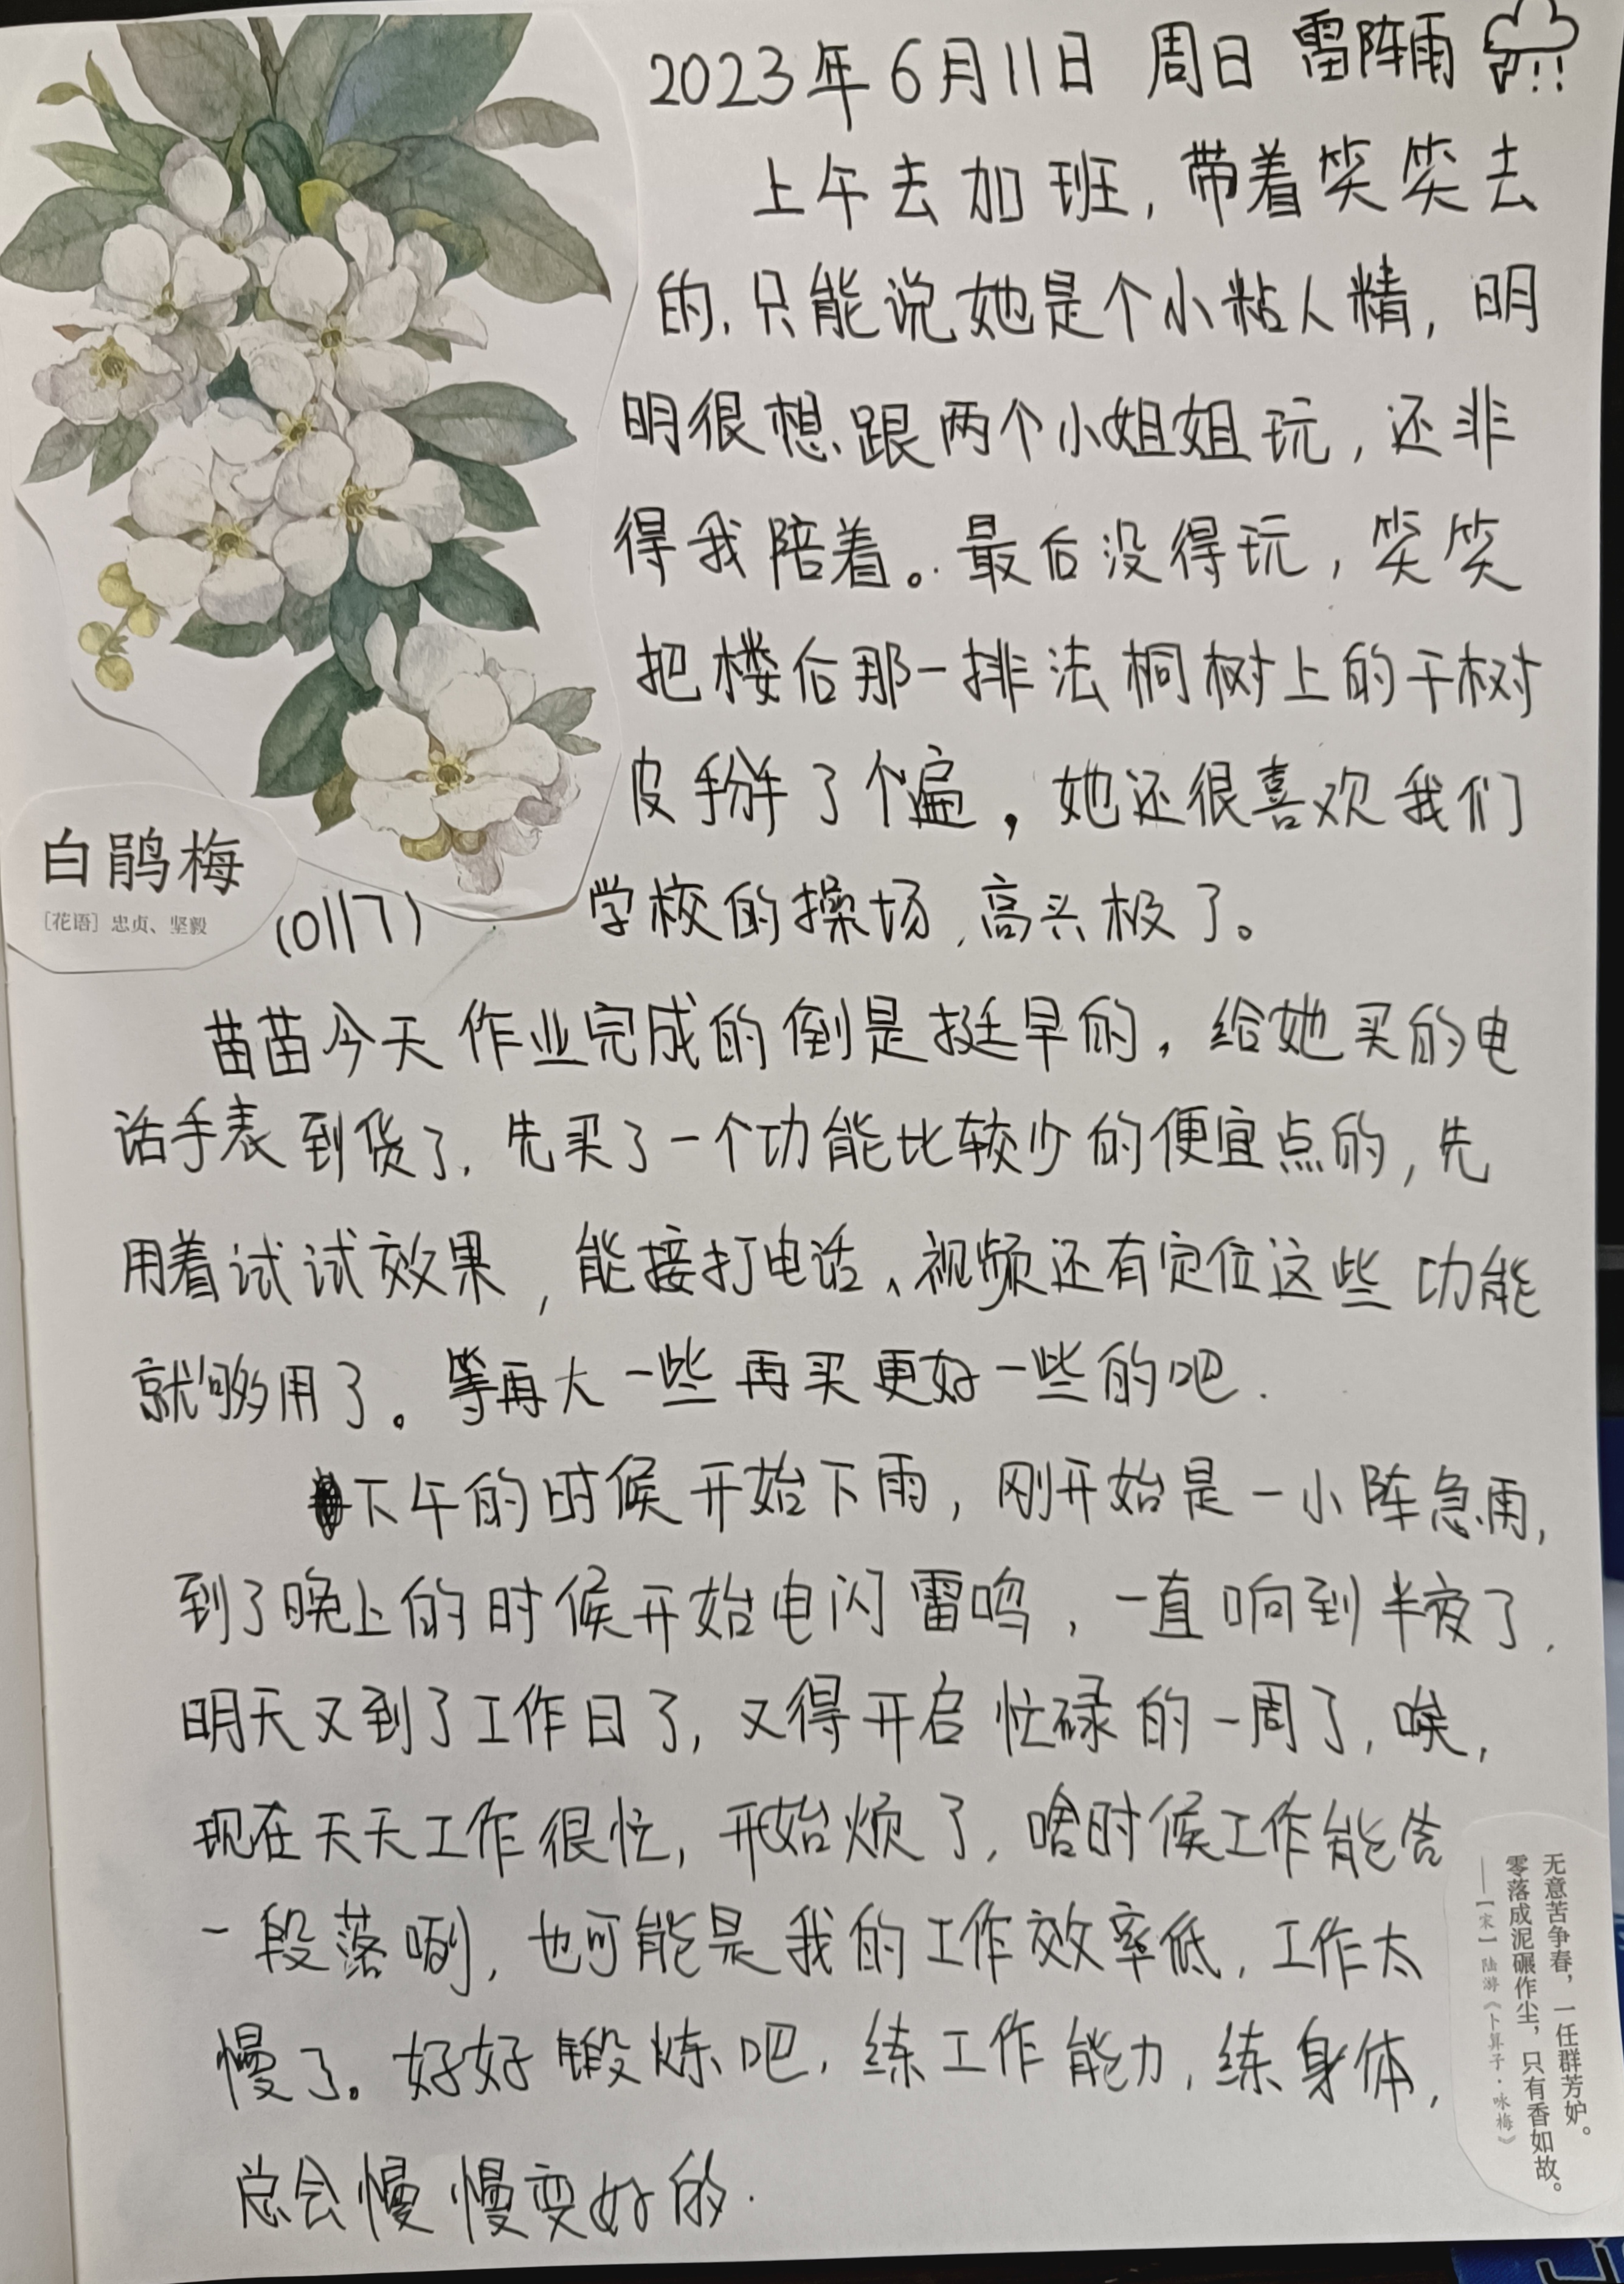 2023年6月11日 周日 雷阵雨
上午去加班,带着笑笑去
的,只能说她是个小粘人精,明
明很想跟两个小姐姐玩,还非
得我陪着。最后没得玩,笑笑
把楼后那一排法桐树上的干树
皮掰了个遍,她还很喜欢我们
学校的操场,高兴极了。
白鹃梅
[花语] 忠贞、坚毅
(0117)
苗苗今天作业完成的倒是挺早的,给她买的电
话手表到货了,先买了一个功能比较少的便宜点的,先
用着试试效果,能接打电话、视频还有定位这些功能
就够用了。等再大一些再买更好一些的吧.
下午的时候开始下雨,刚开始是一小阵急雨,
到了晚上的时候开始电闪雷鸣,一直响到半夜了.
明天又到了工作日了,又得开启忙碌的一周了,唉,
现在天天工作很忙,开始烦了,啥时候工作能告
一段落啊,也可能是我的工作效率低,工作太
慢了。好好锻炼吧,练工作能力,练身体,
总会慢慢变好的.
无意苦争春,一任群芳妒。
零落成泥碾作尘,只有香如故。
——【宋】陆游《卜算子·咏梅》